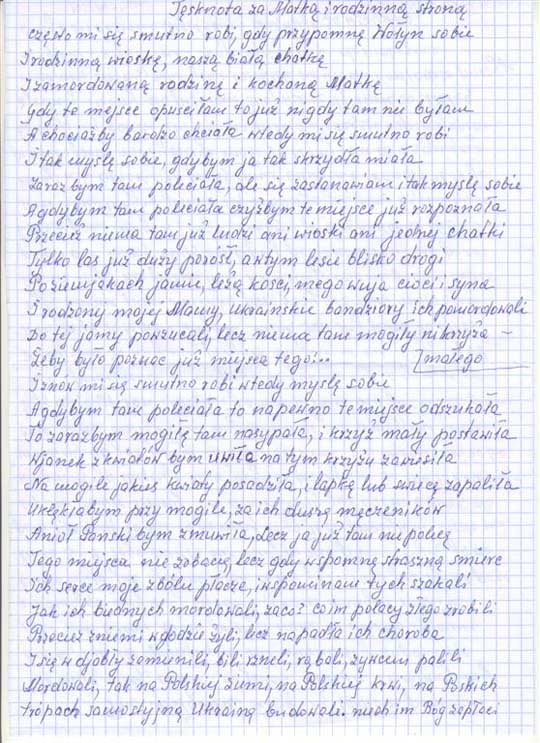 Tęsknota za Matką i rodzinną stroną
często mi się smutno robi, gdy przypomnę Wołyn sobie
I rodzinną wioskę, naszą białą chatkę
I zamordowaną rodzinę i kochaną Matkę
Gdy te mejsce opusciłam to już nigdy tam nie byłam
A chociażby bardzo chciała wtedy mi się smutno robi
I tak myslę sobie, gdybym ja tak skrzydła miała
Zaraz bym tam poleciała, ale się zastanawiam i tak myslę sobie
A gdybym tam poleciała czyżbym te miejsce już rozpoznała
Przecież niema tam już ludzi ani wioski ani jednej chatki
Tylko las już duży porósł, a w tym lesie blisko drogi
Po ziemjakach jamie, leżą kosci, mego wuja cioci i syna
I rodzony mojej Mamy, ukrainskie bandziory ich pomordowali
Do tej jamy powzucali, lecz niema tam mogiły ni krzyża —
Żeby było poznac już miejsca tego... małego
I znow mi się smutno robi wtedy myslę sobie
A gdybym tam poleciała to napewno te miejsce odszukała
To zaraz bym mogiłę tam nasypała, i krzyż mały postawiła
Wjanek z kwiatów bym uwiła na tym krzyżu zawiesiła
Na mogile jakies kwiaty posadziła, i lapkę lub swiecę zapaliła
Uklękła bym przy mogile, za ich duszę męczenikow
Anioł Panski bym zmuwiła, Lecz ja już tam nie polecę
Tego miejsca nie zobaczę, lecz gdy wspomnę straszną smierc
Ich serce moje z bólu płacze, i wspominam tych szakali
Jak ich biednych mordowali, zaco? co im polacy złego zrobili
Przecież z niemi w głodzie żyli, lecz napadła ich choroba
I się w djobły zamienili, bili rzneli, rąbali, żywcem palili
Mordowali, tak na Polskiej ziemi, na Polskiej krwi, na Polskich
trópach samostyjną Ukrainę budowali. niech im Bóg zapłaci